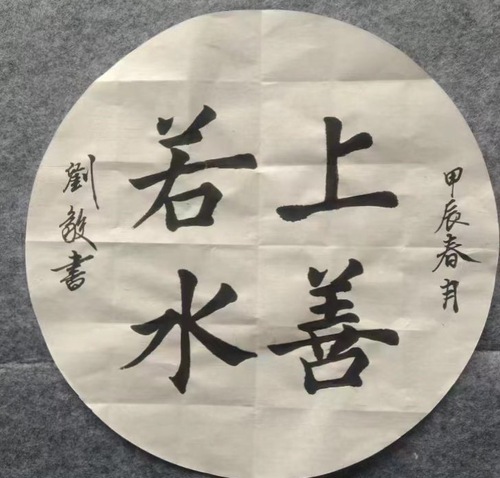 甲辰春月
上善
若水
劉敏書